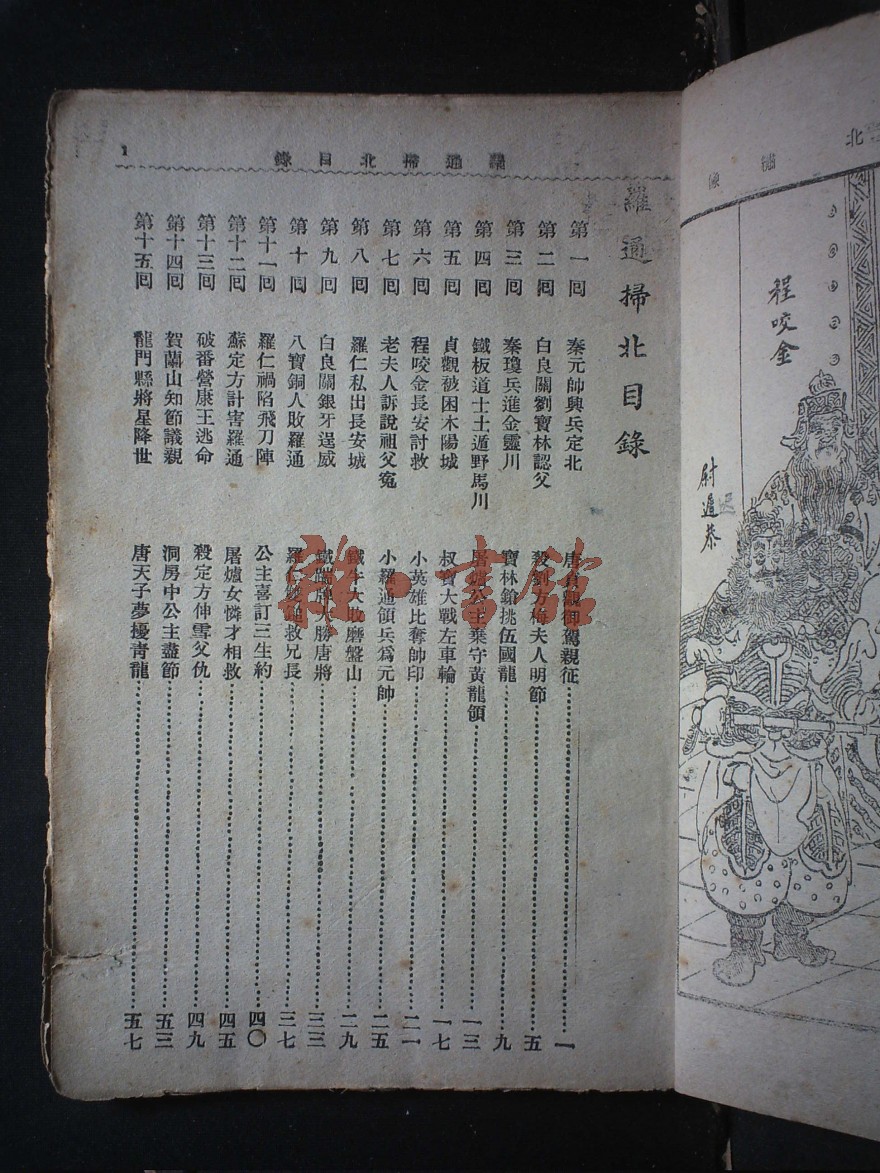 1
羅通掃北目錄
羅通掃北目錄
第一回 秦元帥興兵定北 唐貞觀御駕親征 一
第二回 白良關劉寶林認父 殺劉方梅夫人明節 五
第三回 秦瓊兵進金靈川 寶林鎗挑伍國龍 九
第四回 鐵板道士土遁野馬川 屠爐公主乘守黃龍領 一三
第五回 貞觀被困木陽城 叔寶大戰左車輪 一七
第六回 程咬金長安討救 小英雄比奪帥印 二一
第七回 老夫人訴說祖父寃 小羅通領兵爲元帥 二五
第八回 羅仁私出長安城 鐵牛大敗磨盤山 二九
第九回 白良關銀牙逞威 鐵踹牌大勝唐將 三三
第十回 八寶銅人敗羅通 羅仁雙鎚救兄長 三七
第十一回 羅仁禍陷飛刀陣 公主喜訂三生約 四〇
第十二回 蘇定方計害羅通 屠爐女憐才相救 四五
第十三回 破番營康王逃命 殺定方伸雪父仇 四九
第十四回 賀蘭山知節議親 洞房中公主盡節 五三
第十五回 龍門縣將星降世 唐天子夢擾青龍 五七
北 繡像
程咬金
尉遲恭
雅·書館